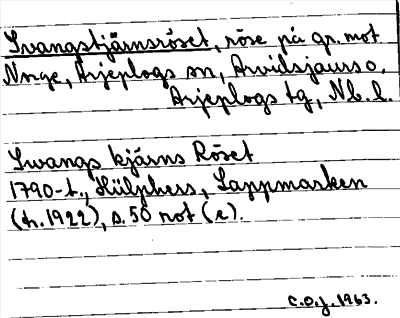 Svangstjärnsröset, röse på gr. mot
Norge, Arjeplogs sn, Arvidsjaurs o.
Arjeplogs tg, Nb. l.
Swangs kjärns Röset
1790-t., Hülphers, Lappmarken
(tr. 1922), s. 50 not (e).
C.O.J. 1963.